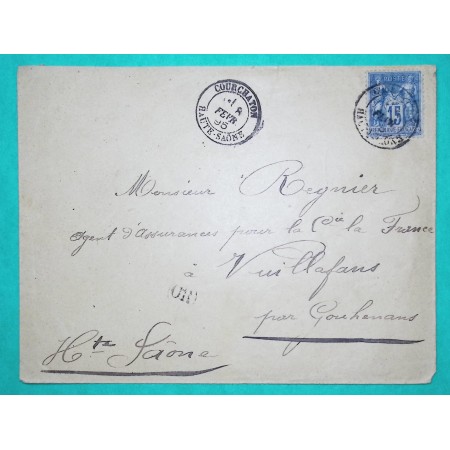 COURCHATON
8
FEVR
95
HAUTE-SAÔNE
POSTE
15
Monsieur Regnier
agent d'assurances pour la Cie la France
à Vuillafans
par Gouhenans
Hte Saône
OR